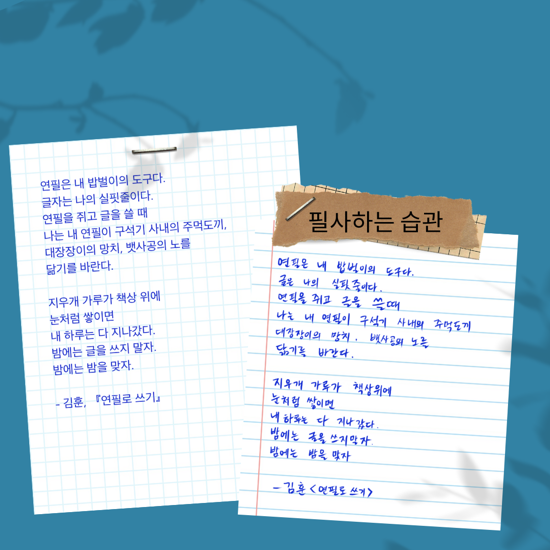 연필은 내 밥벌이의 도구다.
글자는 나의 실핏줄이다.
연필을 쥐고 글을 쓸 때
나는 내 연필이 구석기 사내의 주먹도끼,
대장장이의 망치, 뱃사공의 노를
닮기를 바란다.
지우개 가루가 책상 위에
눈처럼 쌓이면
내 하루는 다 지나갔다.
밤에는 글을 쓰지 말자.
밤에는 밤을 맞자.
- 김훈, 『연필로 쓰기』
필사하는 습관
연필은 내 밥벌이의 도구다.
글은 나의 실핏줄이다.
연필을 쥐고 글을 쓸때
나는 내 연필이 구석기 사내의 주먹도끼
대장장이의 망치, 뱃사공의 노를
닮기를 바란다.
지우개 가루가 책상위에
눈처럼 쌓이면
내 하루는 다 지나갔다.
밤에는 글을 쓰지말자
밤에는 밤을 맞자
- 김훈 <연필로 쓰기>